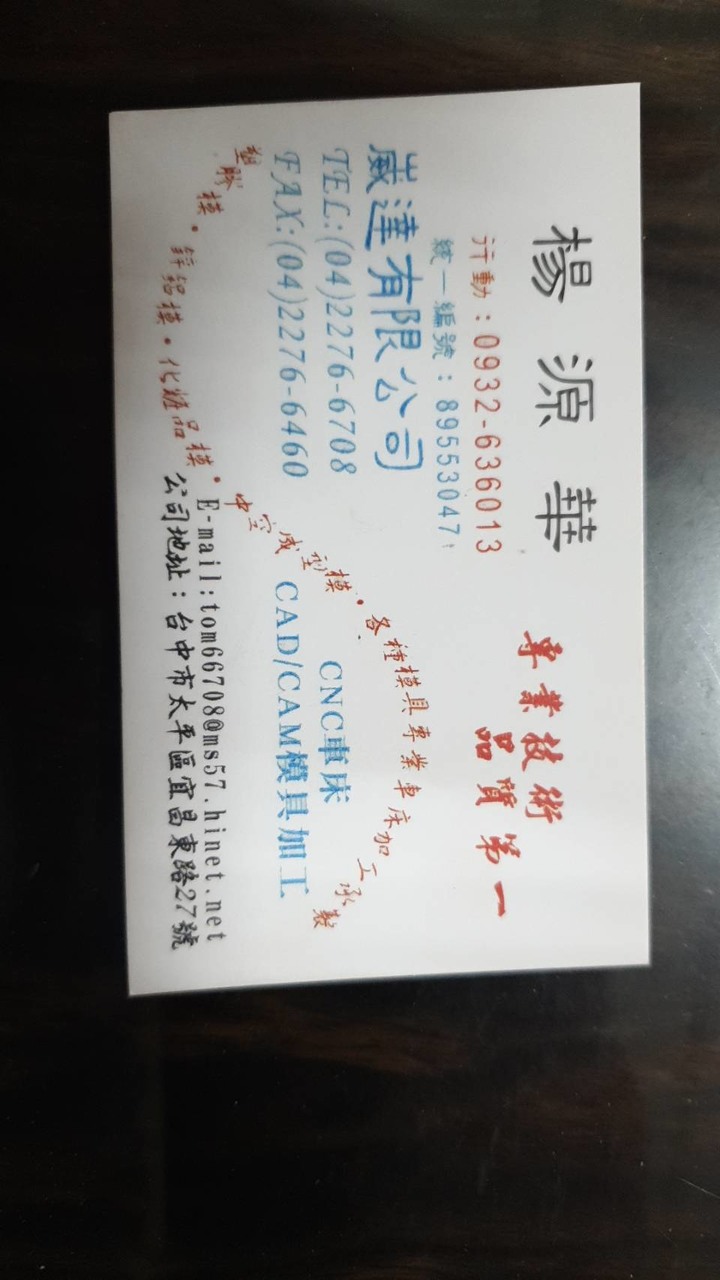 楊源華
專業技術
品質第一
行動：0932-636013
統一編號：89553047
崴達有限公司
TEL:(04)2276-6708
FAX:(04)2276-6460
CNC車床
CAD/CAM模具加工
塑膠模·鋅鋁模·化粧品模·中空成型模·各種模具專業車床加工承製
E-mail:tom66708@ms57.hinet.net
公司地址：台中市太平區宜昌東路27號